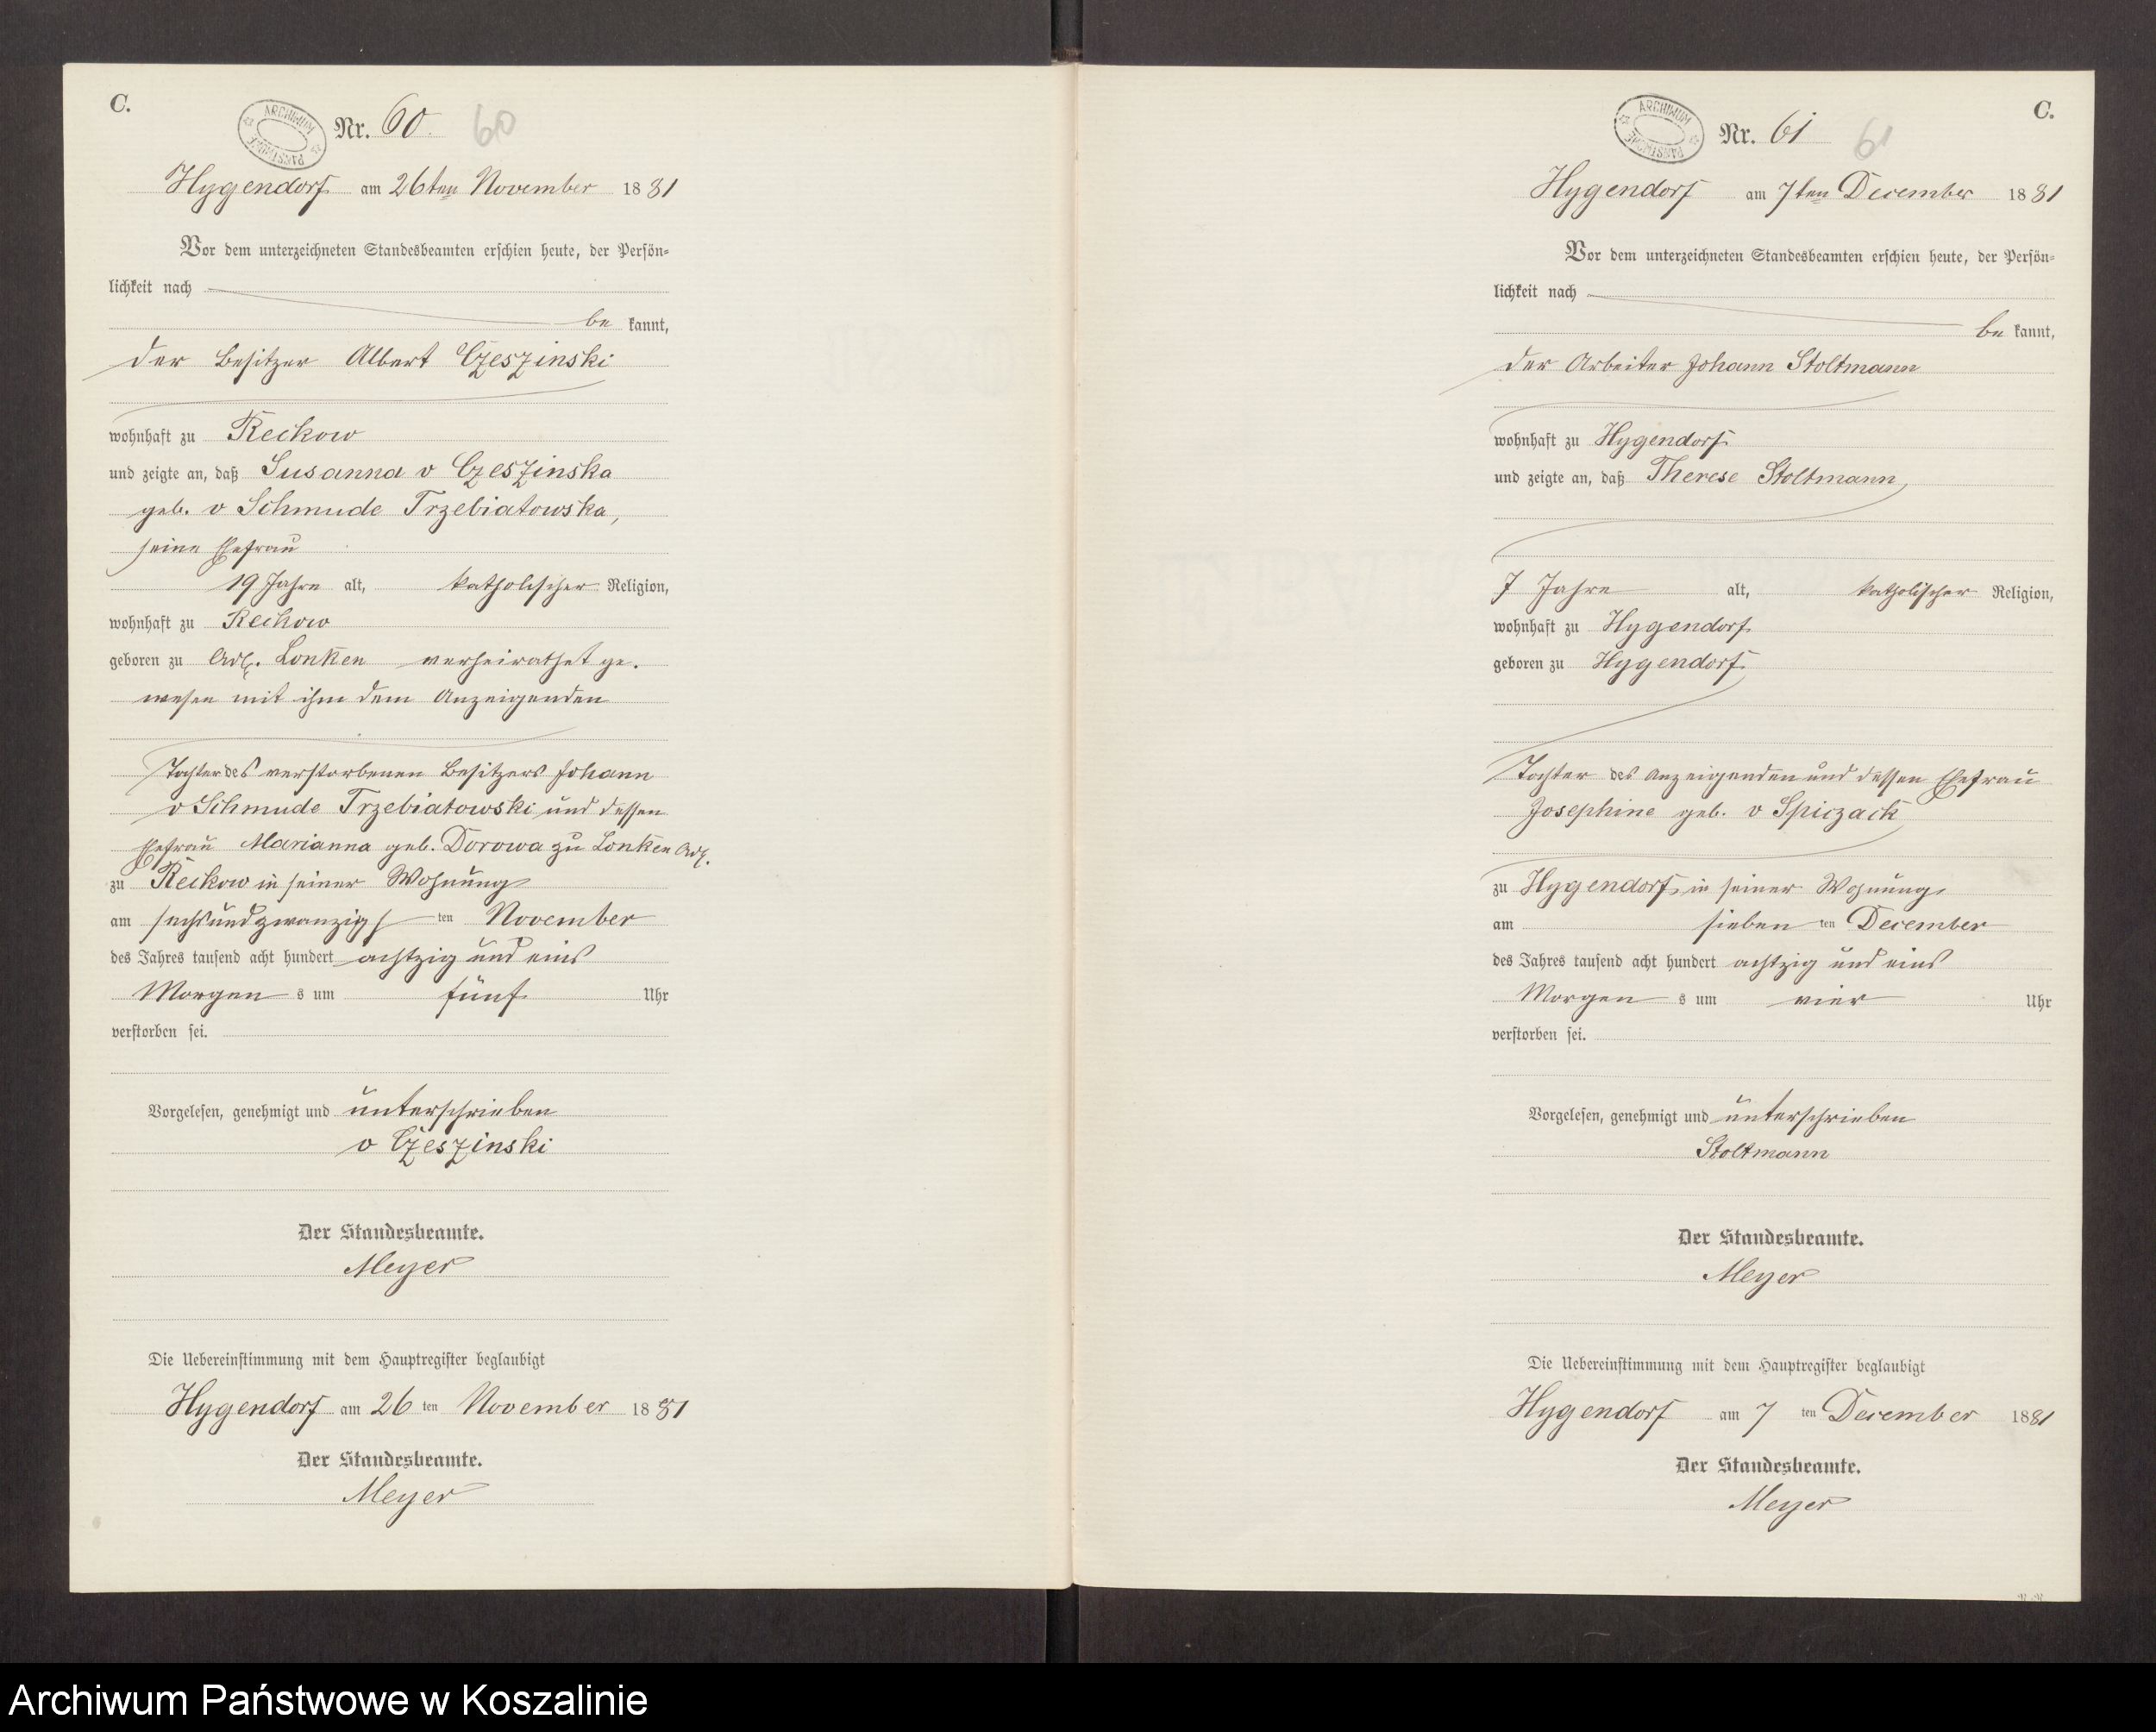 C.
ARCHIWUM PAŃSTWOWE
Nr. 60. 60
Hygendorf am 26ten November 1881
Vor dem unterzeichneten Standesbeamten erschien heute, der Persön-
lichkeit nach
be kannt,
der Besitzer Albert Czeszinski
wohnhaft zu Reckow
und zeigte an, daß Susanna v Czeszinska
geb. v Schmude Trzebiatowska,
seine Ehefrau
19 Jahre alt, katholischer Religion,
wohnhaft zu Reckow
geboren zu Adl. Lonken verheirathet ge.
wesen mit ihm dem Anzeigenden
Tochter des verstorbenen Besitzers Johann
v Schmude Trzebiatowski und dessen
Ehefrau Marianna geb. Dorowa zu Lonken Adl.
zu Reckow in seiner Wohnung
am sechsundzwanzigs ten November
des Jahres tausend acht hundert achtzig und eins
Morgen s um fünf Uhr
verstorben sei.
Vorgelesen, genehmigt und unterschrieben
v Czeszinski
Der Standesbeamte.
Meyer
Die Uebereinstimmung mit dem Hauptregister beglaubigt
Hygendorf am 26 ten November 1881
Der Standesbeamte.
Meyer
C.
ARCHIWUM PAŃSTWOWE
Nr. 61 61
Hygendorf am 7ten December 1881
Vor dem unterzeichneten Standesbeamten erschien heute, der Persön-
lichkeit nach
be kannt,
der Arbeiter Johann Stoltmann
wohnhaft zu Hygendorf
und zeigte an, daß Therese Stoltmann,
7 Jahre alt, katholischer Religion,
wohnhaft zu Hygendorf
geboren zu Hygendorf
Tochter des Anzeigenden und dessen Ehefrau
Josephine geb. v Spiczack
zu Hygendorf in seiner Wohnung,
am sieben ten December
des Jahres tausend acht hundert achtzig und eins
Morgen s um vier Uhr
verstorben sei.
Vorgelesen, genehmigt und unterschrieben
Stoltmann
Der Standesbeamte.
Meyer
Die Uebereinstimmung mit dem Hauptregister beglaubigt
Hygendorf am 7 ten December 1881
Der Standesbeamte.
Meyer
Archiwum Państwowe w Koszalinie